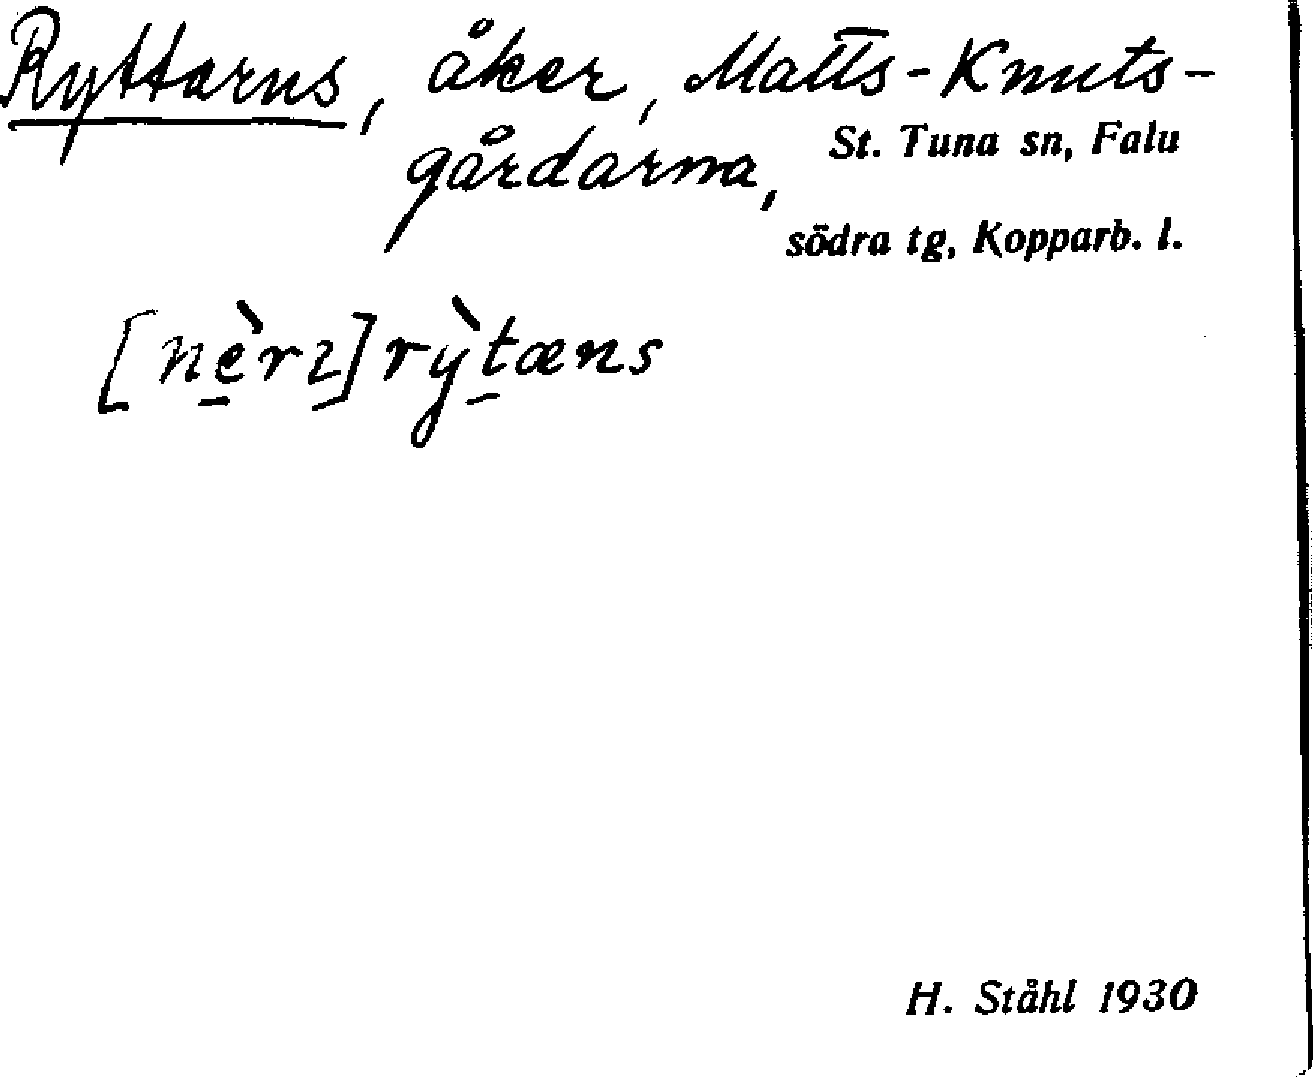 Ryttarns, åker, Matts-Knuts-
gårdarna,
St. Tuna sn, Falu
södra tg, Kopparb. l.
[nè̱rı]rỳt̠æns
H. Ståhl 1930